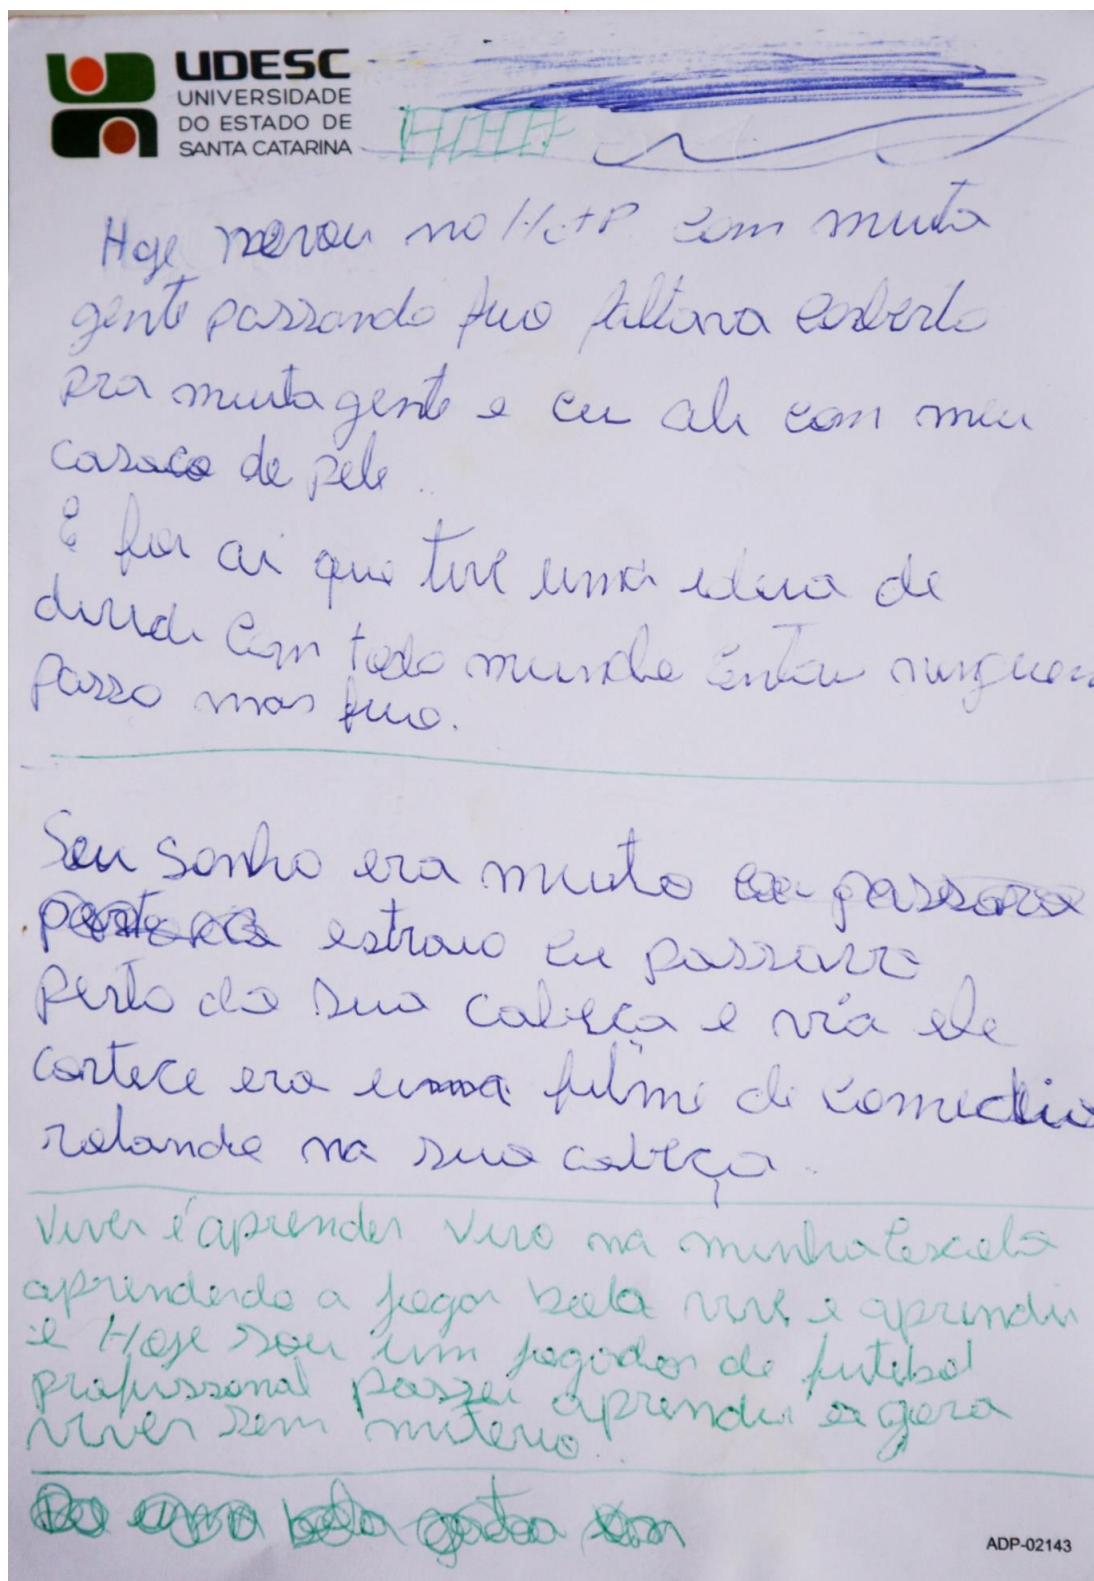 UDESC
UNIVERSIDADE
DO ESTADO DE
SANTA CATARINA
Hoje no com muita
gente passando frio faltava coberto
pra muita gente e eu ali com meu
casaco de pele.
E foi ai que tive uma ideia de
dividi com todo mundo entou ninguem
passo mas frio.
Seu sonho era muito passara
estraio eu passava
perto da sua cabeça e via ele
cortece era uma filme de comedia
rolando na sua cabeça.
Viver é aprender vivo na minha escola
aprendendo a jogar bola vivi e aprendi
e Hoje sou um jogador de futebol
profissonal passei aprendi agora
viver sem miterio.
uma bola
ADP-02143